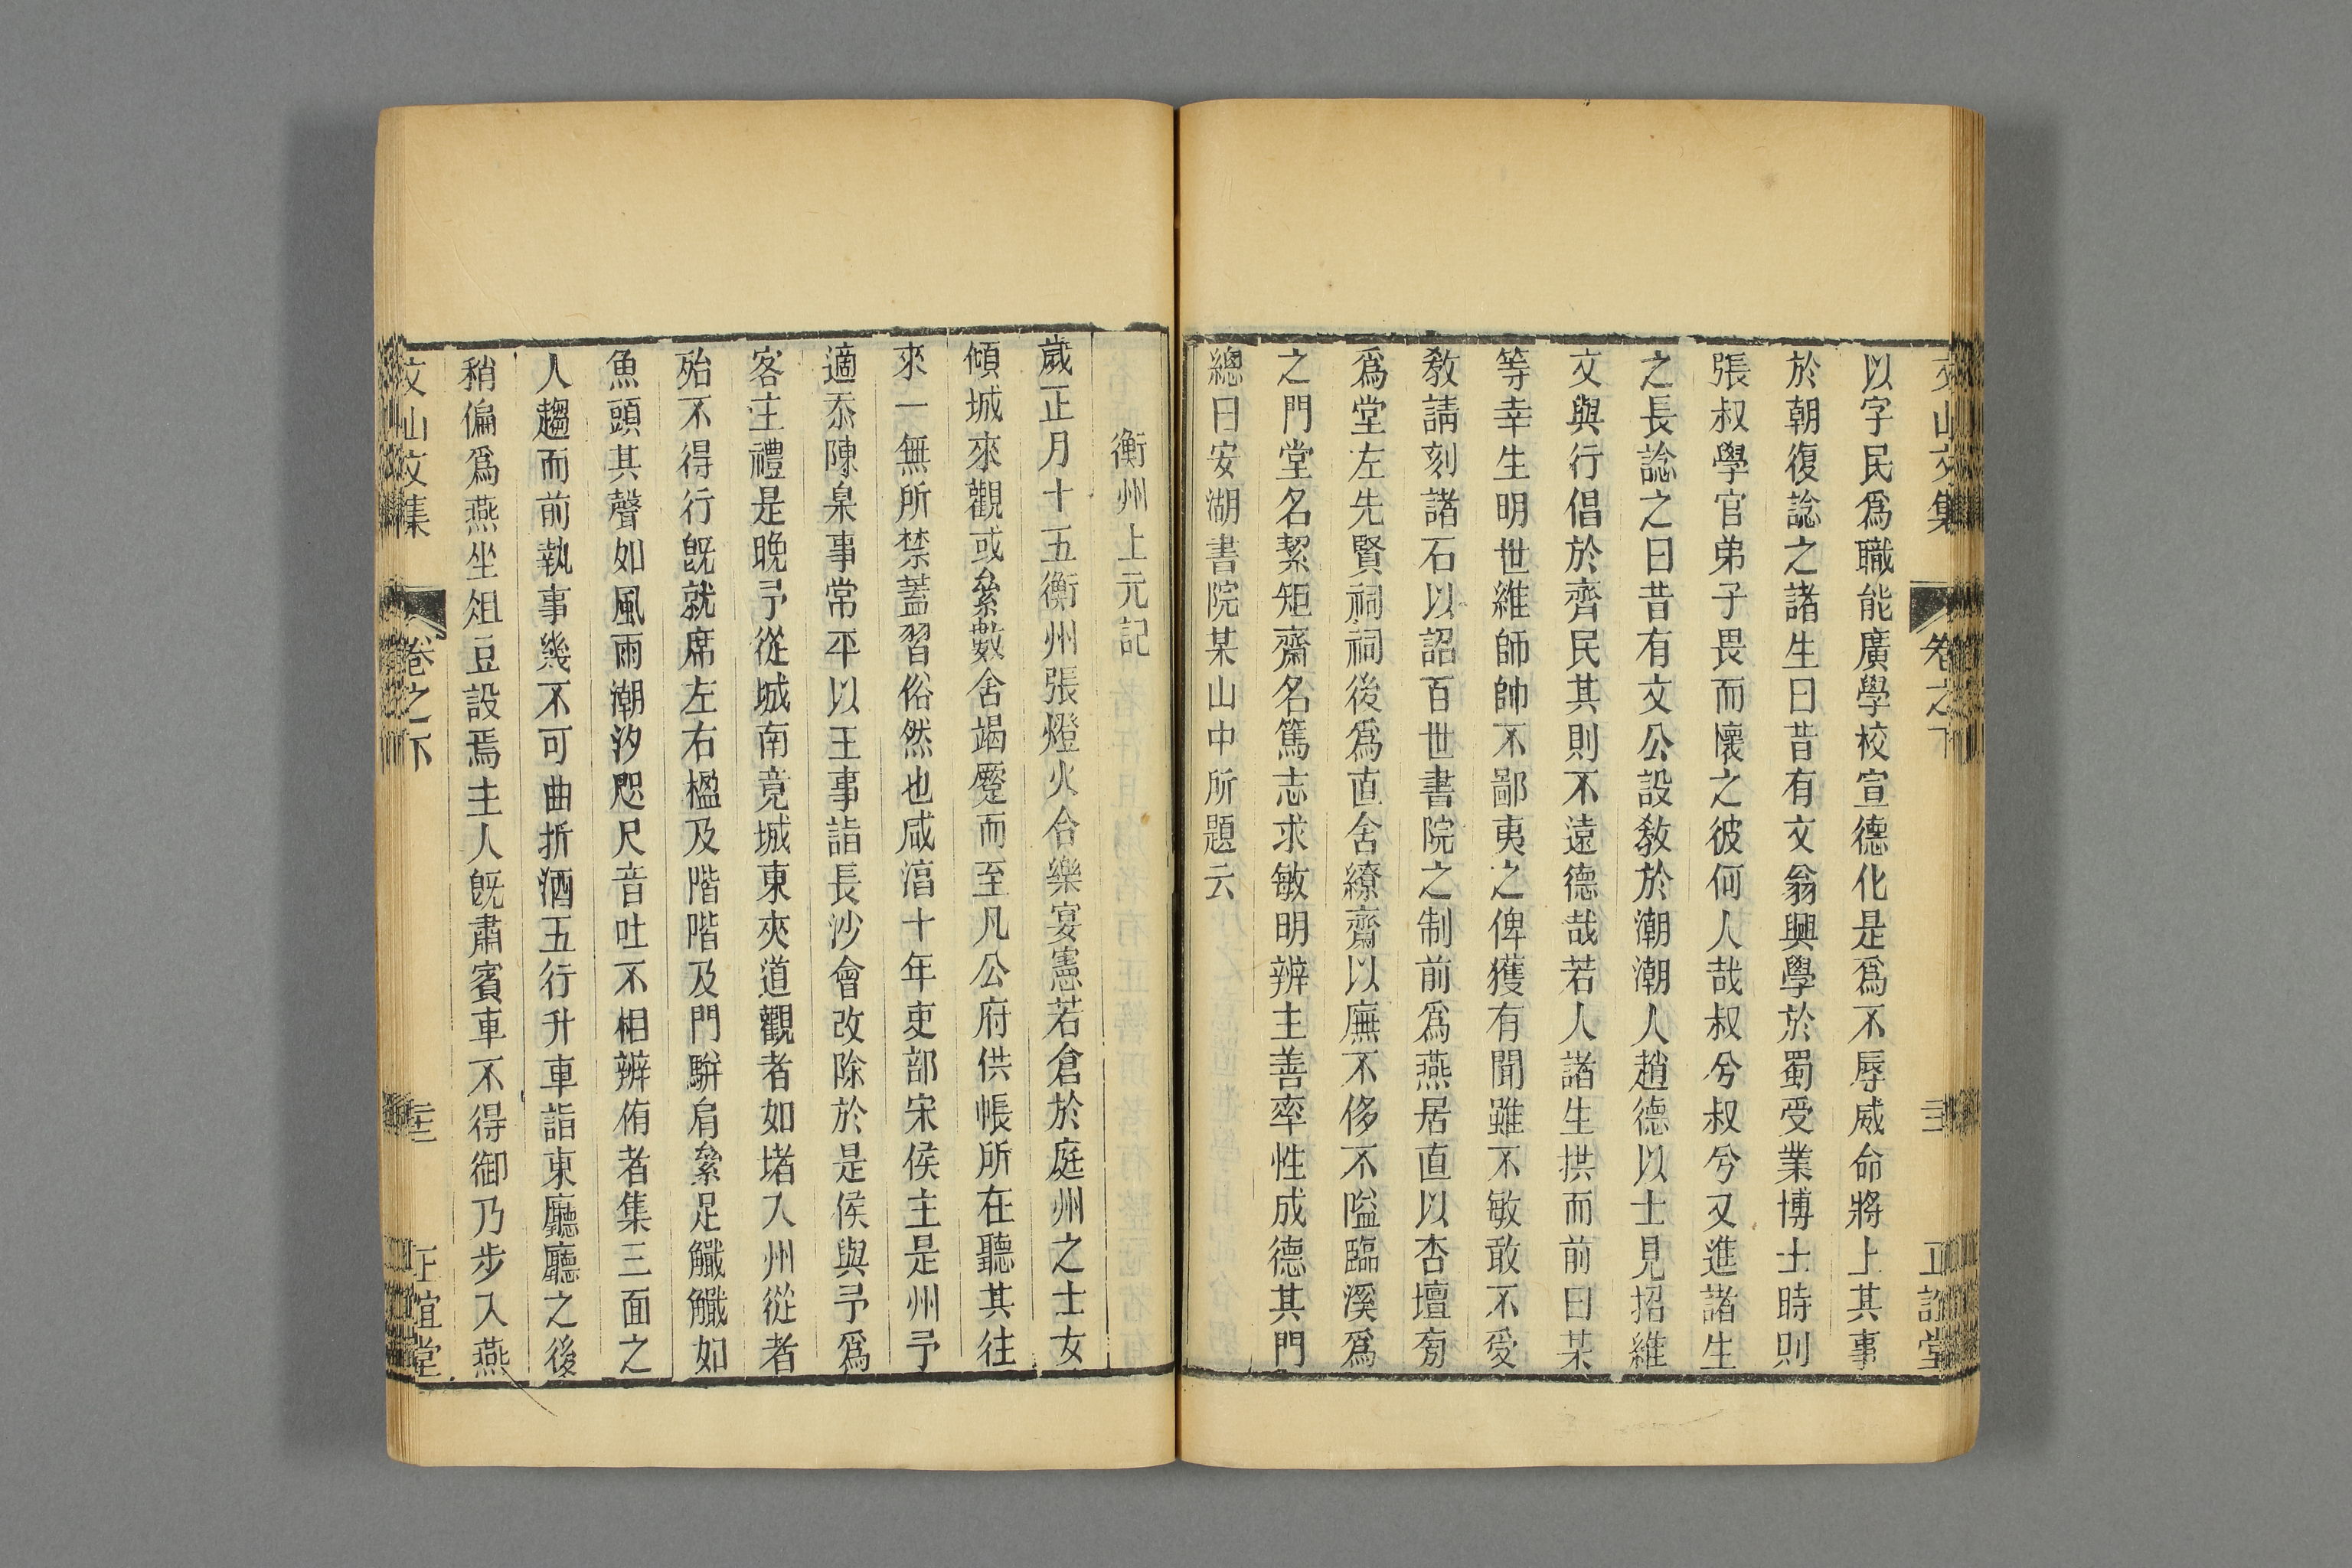 文山文集 卷之下 正誼堂
以字民爲職能廣學校宣德化是爲不辱威命將上其事
於朝復諗之諸生曰昔有文翁興學於蜀受業博士時則
張叔學官弟子畏而懷之彼何人哉叔兮叔兮又進諸生
之長諗之曰昔有文公設敎於潮潮人趙德以士見招維
文與行倡於齊民其則不遠德哉若人諸生拱而前曰某
等幸生明世維師帥不鄙夷之俾獲有聞雖不敏敢不受
敎請刻諸石以詔百世書院之制前爲燕居直以杏壇旁
爲堂左先賢祠祠後爲直舍繚齋以廡不侈不隘臨溪爲
之門堂名絜矩齋名篤志求敏明辨主善率性成德其門
總曰安湖書院某山中所題云
衡州上元記
歲正月十五衡州張燈火合樂宴憲若倉於庭州之士女
傾城來觀或絫數舍竭蹷而至凡公府供帳所在聽其往
來一無所禁蓋習俗然也咸淳十年吏部宋侯主是州予
適忝陳臬事常平以王事詣長沙會改除於是侯與予爲
客主禮是晚予從城南竟城東夾道觀者如堵入州從者
殆不得行旣就席左右楹及階階及門騈肩絫足䊹䊹如
魚頭其聲如風雨潮汐咫尺音吐不相辨侑者集三面之
人趨而前執事幾不可曲折酒五行升車詣東廳廳之後
稍偏爲燕坐俎豆設焉主人旣肅賓車不得御乃步入燕
文山文集 卷之下 正誼堂